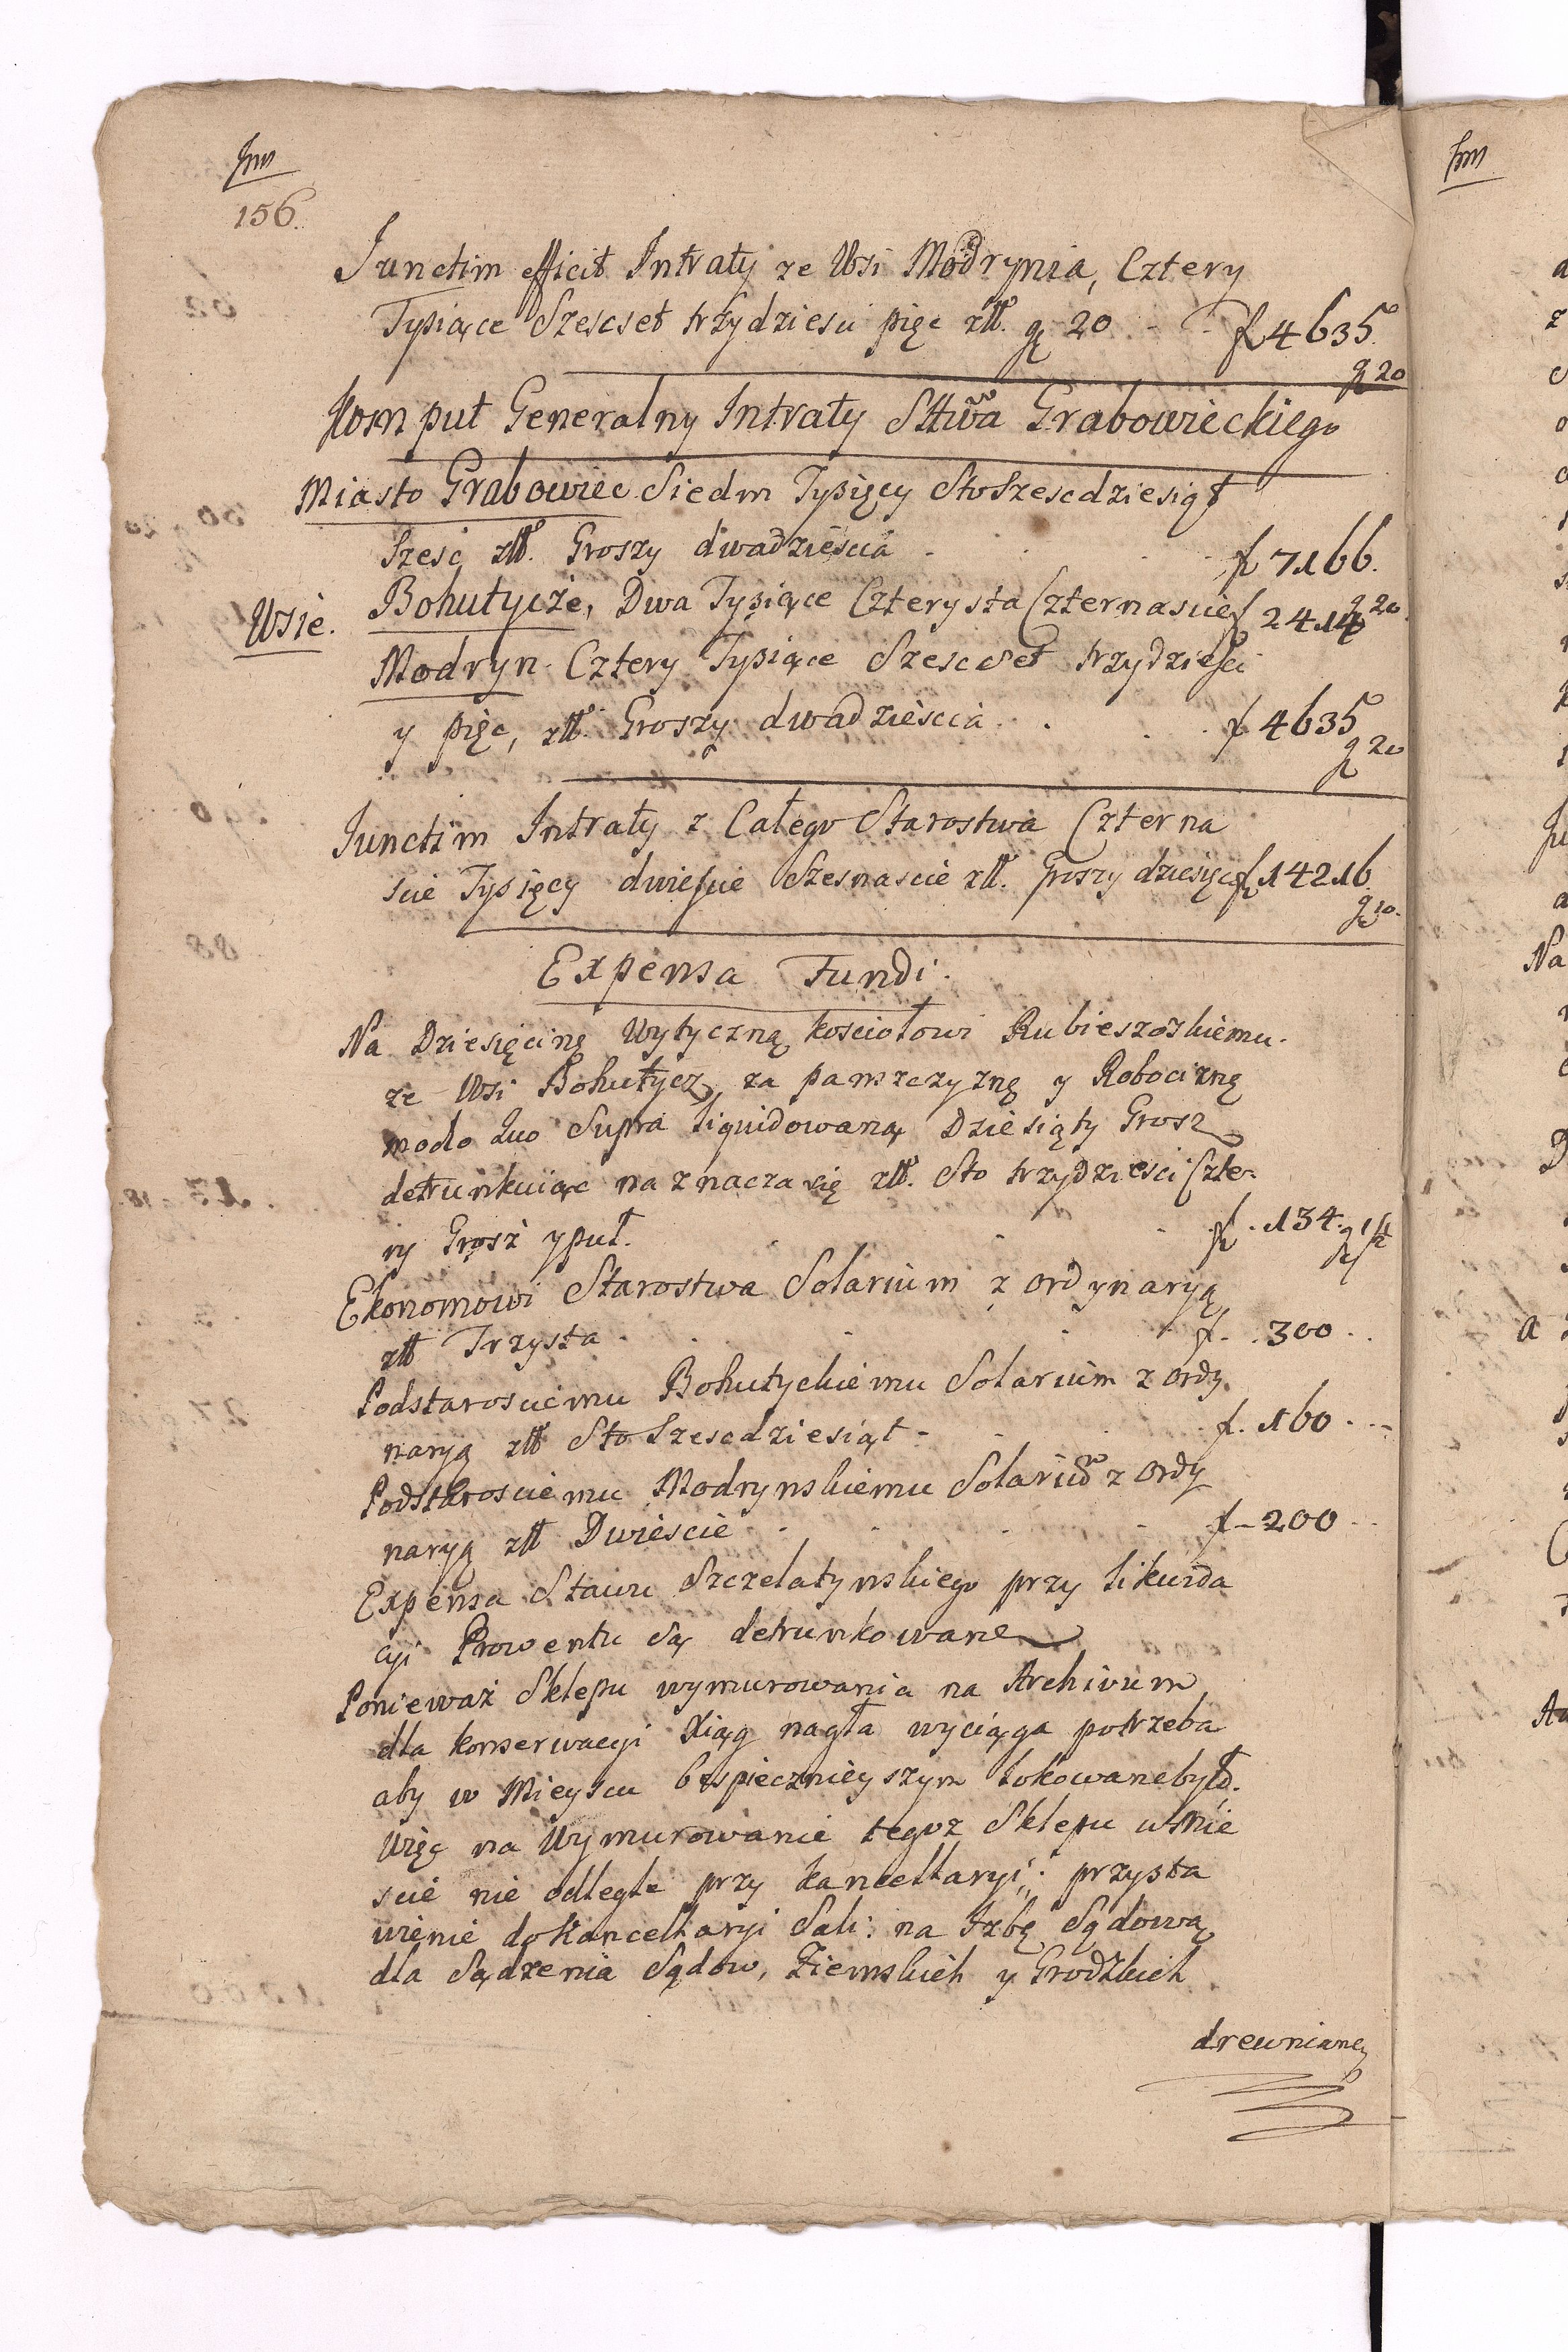 156.
Junctim efficit Intraty ze Wsi Modrynia, Cztery
Tysiące Szescset trzydziesci pięc złł. gr 20 - f 4635.
gr 20
Komput Generalny Intraty Sttwa Grabowieckiego
Miasto Grabowiec Siedm Tysięcy Sto Szescdziesiąt
Szesc złł. Groszy dwadziescia . . . f 7166.
gr 20.
Wsie. Bohutycze, Dwa Tysiące Czterysta Czternascie f 2414
Modryn Cztery Tysiące Szescset trzydziesci
y pięc, złł. Groszy dwadziescia . . . f 4635
gr 20
Junctim Intraty z Całego Starostwa Czterna
scie Tysięcy dwiescie Szesnascie złł. Groszy dziesięc f 14216
gr 10.
Expensa Fundi.
Na Dziesięcinę Wytyczną kosciołowi Rubieszowskiemu.
ze Wsi Bohutycz, za panszczyznę y Robociznę
modo quo Supra liquidowaną Dziesiąty Grosz
detrunkuiąc naznacza się złł. Sto trzydziesci Czte-
ry Grosz y puł. . . . f. 134. gr 1½
Ekonomowi Starostwa Solarium z ordynaryą
złł Trzysta . . . f. 300 . .
Podstaroscemu Bohutyckiemu Solarium z ordy
naryą złł Sto Szescdziesiąt - . . f. 160 . - -
Podstarosciemu Modrynskiemu Solariu z Ordy
naryą złł Dwiescie . . . f - 200 . .
Expensa Stawu Szczelatynskiego przy likwida
cyi Prowentu są detrunkowane
Ponieważ Sklepu wymurowania na Archivum
dla konserwacyi Xiąg nagła wyciąga potrzeba
aby w Mieyscu bespiecznieyszym lokowane były.
Więc na Wymurowanie tegoz Sklepu w Mie
scie nie odległe przy kancellaryi; przysta
wienie do kancellaryi Sali: na Izbę Sądową
dla Sądzenia Sądow, Ziemskich y Grodzkich
drewnianey